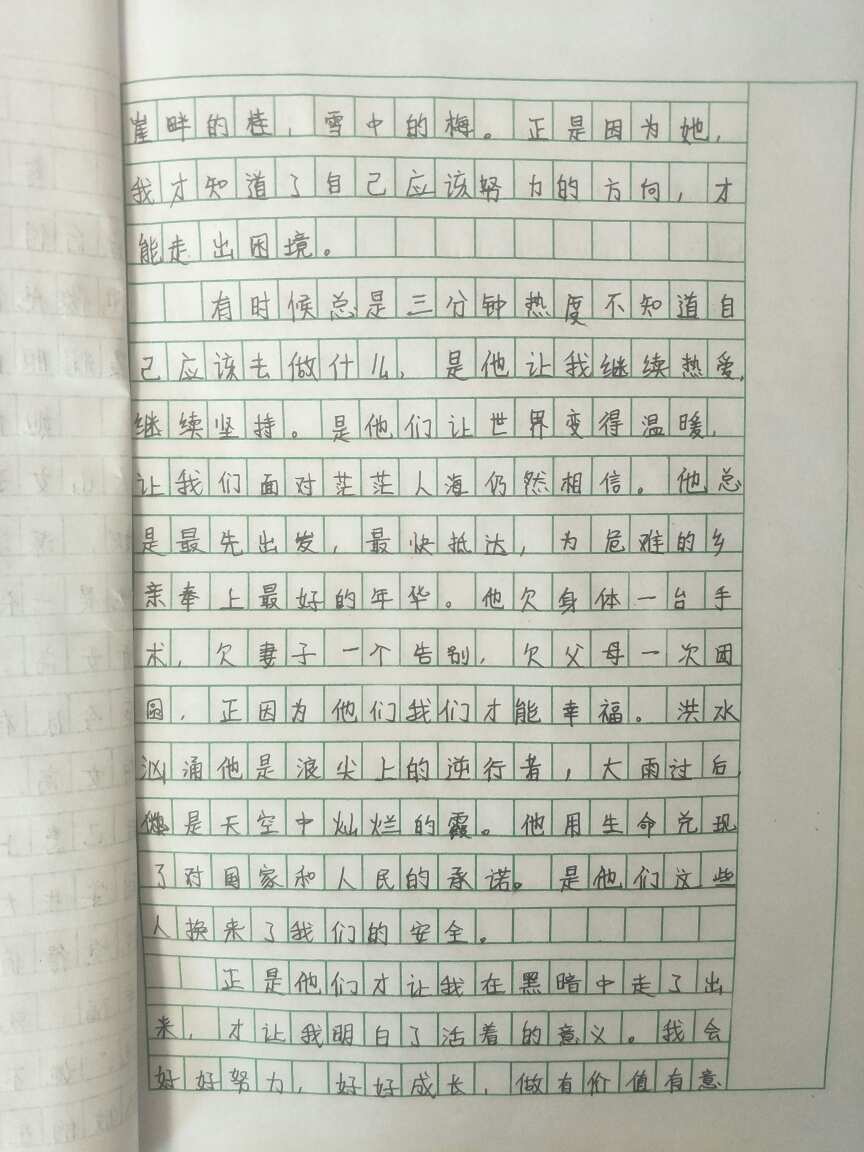 崖畔的桂，雪中的梅。正是因为她，
我才知道了自己应该努力的方向，才
能走出困境。
有时候总是三分钟热度不知道自
己应该去做什么，是他让我继续热爱，
继续坚持。是他们让世界变得温暖，
让我们面对茫茫人海仍然相信。他总
是最先出发，最快抵达，为危难的乡
亲奉上最好的年华。他欠身体一台手
术，欠妻子一个告别，欠父母一次团
圆，正因为他们我们才能幸福。洪水
汹涌他是浪尖上的逆行者，大雨过后
他是天空中灿烂的霞。他用生命兑现
了对国家和人民的承诺。是他们这些
人换来了我们的安全。
正是他们才让我在黑暗中走了出
来，才让我明白了活着的意义。我会
好好努力，好好成长，做有价值有意